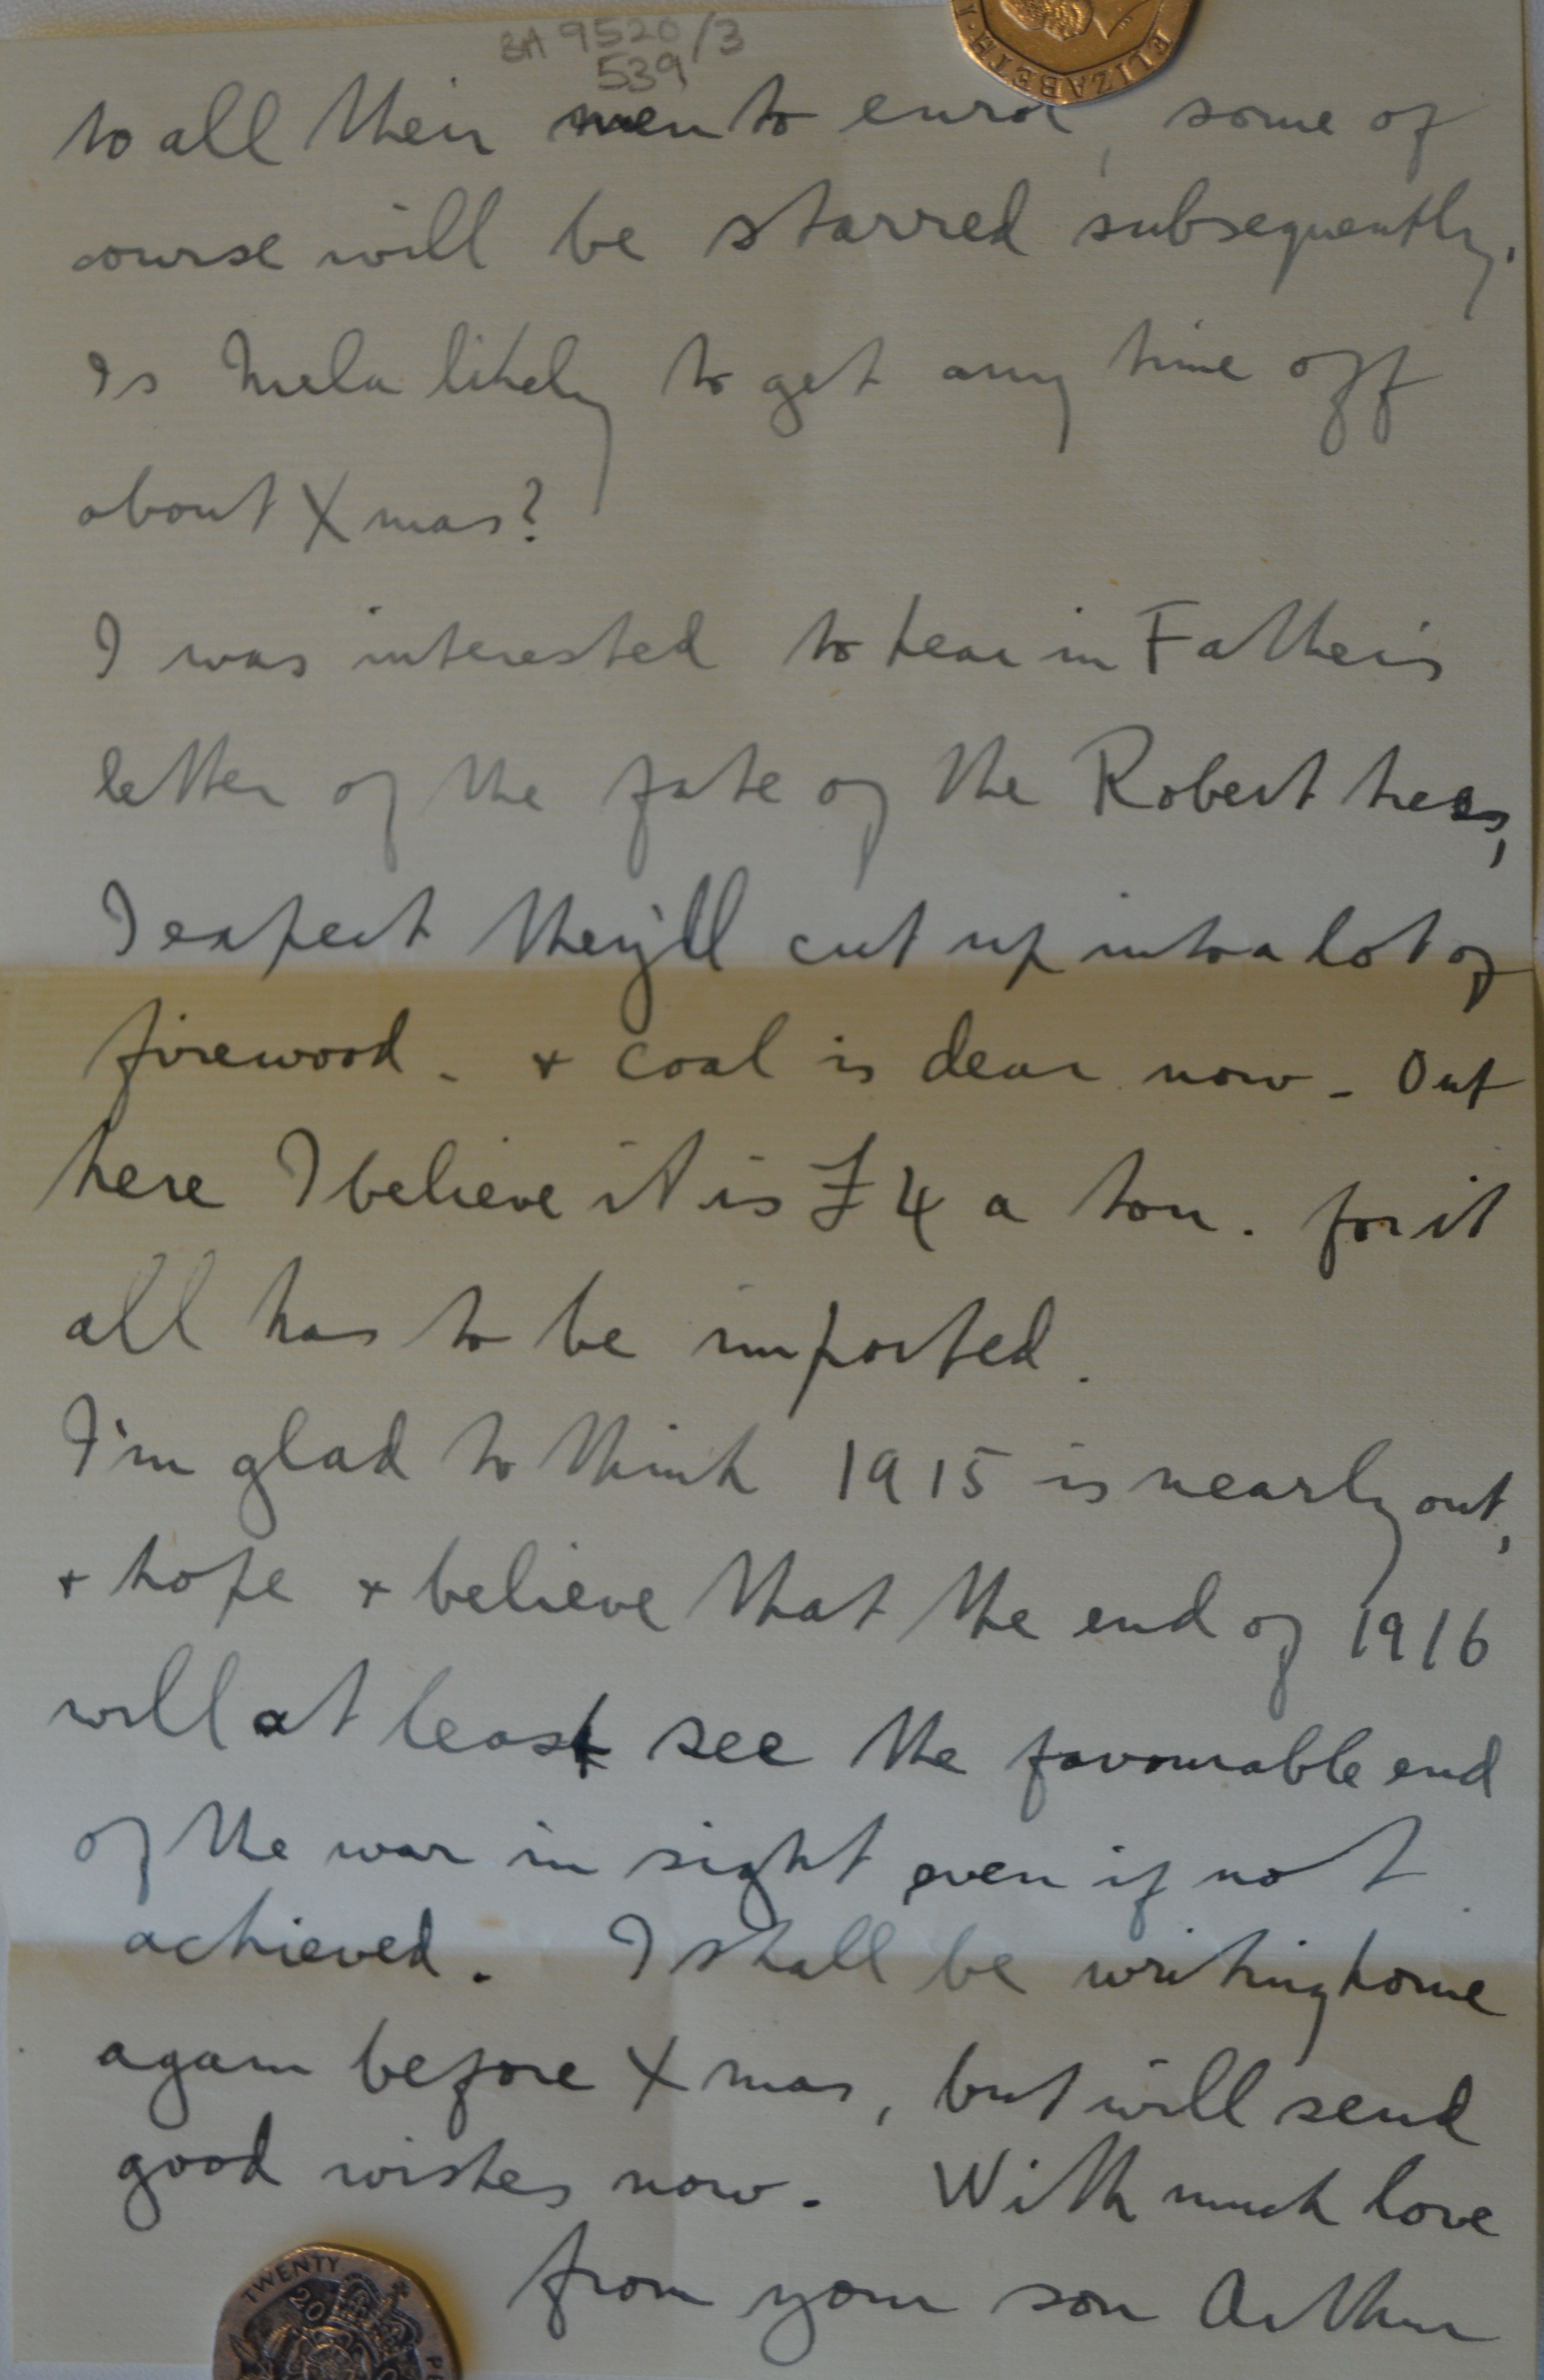 BA 9520/3
539
ELIZABETH·I
to all their men to enrol, some of
course will be starred subsequently.
Is Mela likely to get any time off
about Xmas?
I was interested to hear in Father's
letter of the fate of the Robert trees,
I expect they'll cut up into a lot of
firewood. + coal is dear now - Out
here I believe it is £4 a ton. for it
all has to be imported.
I'm glad to think 1915 is nearly out,
+ hope + believe that the end of 1916
will at least see the favourable end
of the war in sight even if not
achieved. I shall be writing home
again before Xmas, but will send
good wishes now. With much love
from your son Arthur
TWENTY PE
20